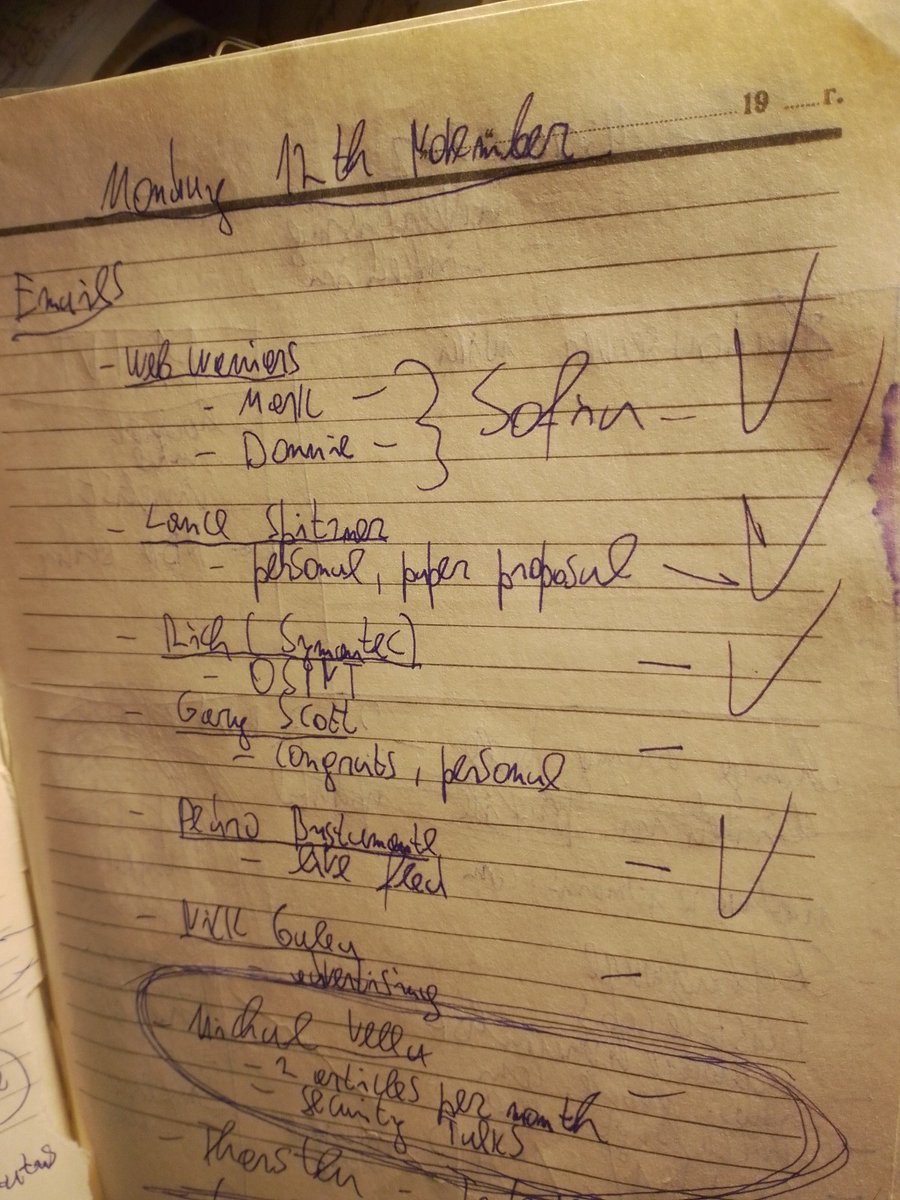 19 г.
Monday 12th November
Emails
- Web Warriors
- Mark -
- Donnie -
} Sofia -
- Lance Spitzner
- personal, paper proposal
- Rich (Symantec) -
- OSINT
- Gary Scott -
- congrats, personal
- Pedro Bustamante
- live feed -
- Nick
- advertising -
- Michal Vella
- 2 articles per month -
- security Talks
- Thorsten -